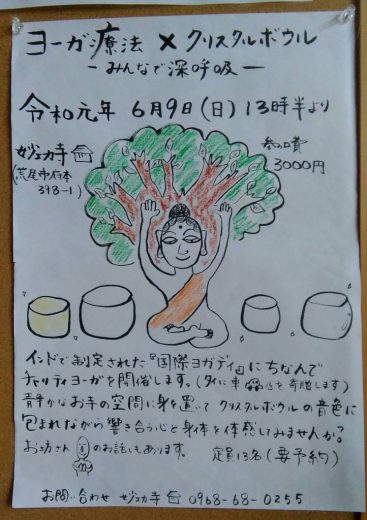 ヨーガ療法 × クリスタルボウル
ーみんなで深呼吸ー
令和元年 6月9日(日) 13時半より
参加費
3000円
妙法寺
(荒尾市府本
398-1)
インドで制定された『国際ヨガデイ』にちなんで
チャリティヨーガを開催します。(タイに車いすを寄贈します)
静かなお寺の空間に身を置いて クリスタルボウルの音色に
包まれながら響き合う心と身体を体感してみませんか?
お坊さんのお話もあります。 定員13名(要予約)
お問い合わせ 0968-68-0255